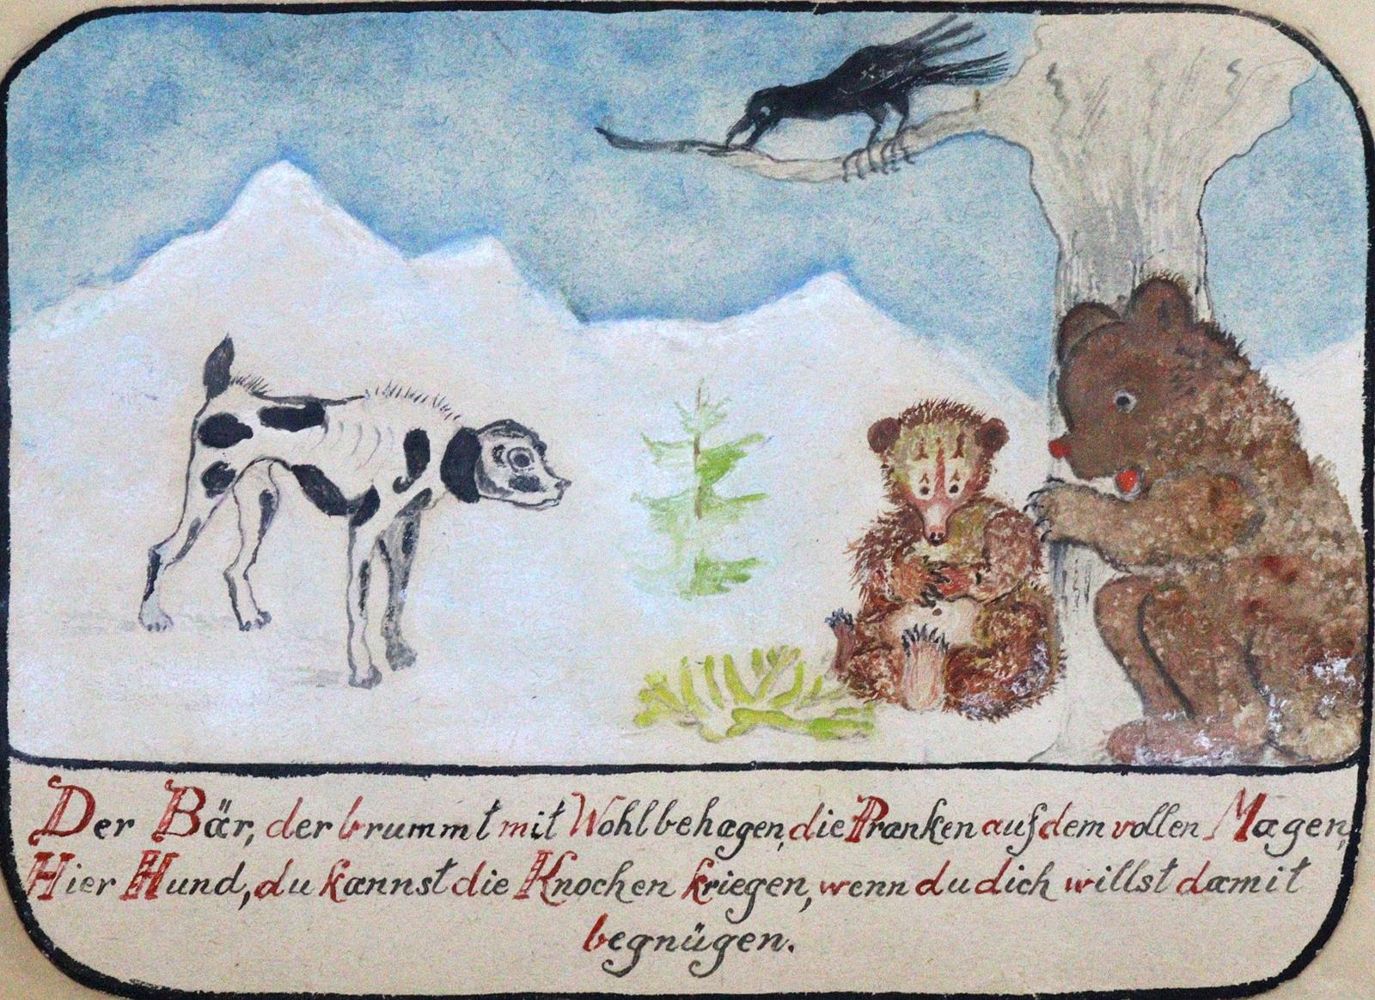 Der Bär, der brummt mit Wohlbehagen, die Pranken auf dem vollen Magen,
Hier Hund, du kannst die Knochen kriegen, wenn du dich willst damit
begnügen.